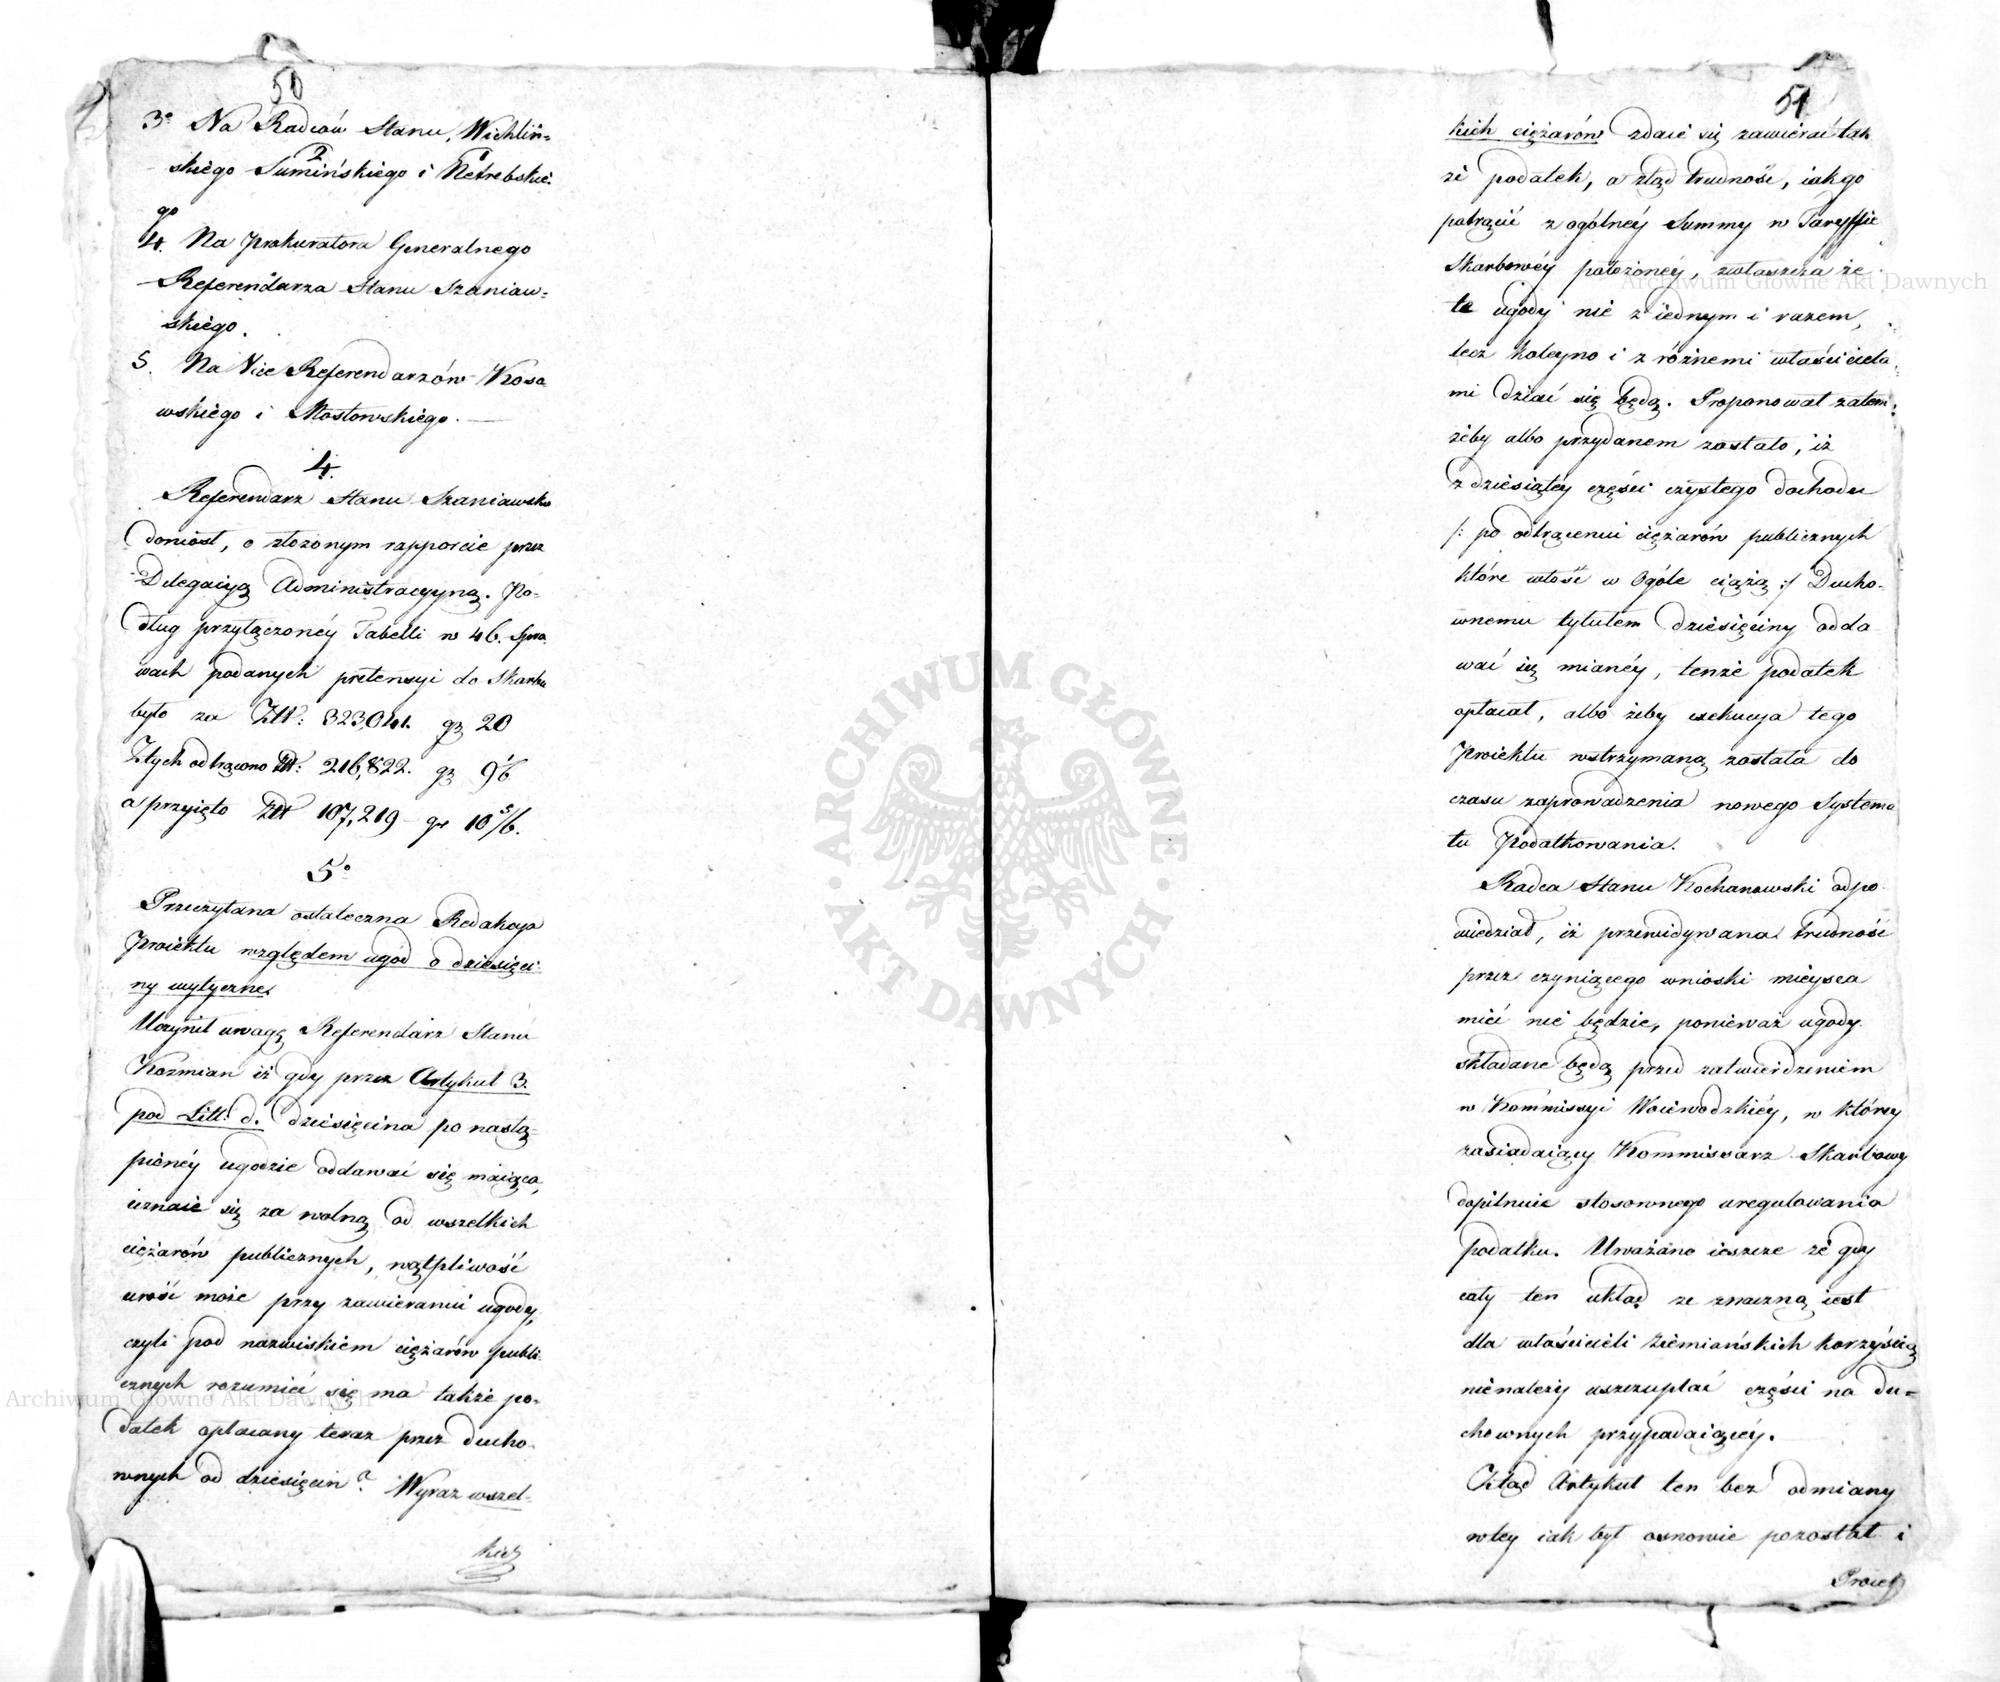 50
3° Na Radców Stanu, Wichliń-
skiego Sumińskiego i Netrebskie-
go
4. Na Prokuratora Generalnego
Referendarza Stanu Szaniaw-
skiego.
5. Na Vice Referendarzów Kosso
wskiego i Mostowskiego.
4.
Referendarz Stanu Szaniawski
doniosł, o złożonym rapporcie przez
Delegacyą Administracyyną. Po-
dług przyłączonéy Tabelli w 46. Spra
wach podanych pretensyi do Skarbu
było za Złł: 323,041. gr 20
Z tych odtrącono Złł: 216,822. gr 9 1/6
a przyięto Złł 107,219 gr 10 5/6.
5°
Przeczytana ostateczna Redakcya
Proiektu względem ugód o dziesięci-
ny wytyczne.
Uczynił uwagę Referendarz Stanu
Koźmian iż gdy przez Artykuł 3.
pod Litt: d. dziesięcina po nastą-
pionéy ugodzie oddawać się maiąca,
uznaie się za wolną od wszelkich
ciężarów publicznych, wątpliwość
urość może przy zawieraniu ugody,
czyli pod nazwiskiem ciężarów publi-
cznych rozumieć się ma także po-
datek opłacany teraz przez ducho-
wnych od dziesięcin? Wyraz wszel-
kich
51
kich ciężarów zdaie się zawierać tak
że podatek, a ztąd trudność, iak go
potrącić z ogólnéy Summy w Taryffie
Skarbowéy położonéy, zwłaszcza że
te ugody nie z iednym i razem,
lecz koleyno i z różnemi właściciela-
mi dziać się będą. Proponował zatem,
żeby albo przydanem zostało, iż
z dziesiątéy części czystego dochodu
/: po odtrąceniu ciężarów publicznych
które włość w Ogóle ciążą :/ Ducho-
wnemu tytułem dziesięciny odda
wać się mianéy, tenże podatek
opłacał, albo żeby exekucya tego
Proiektu wstrzymaną została do
czasu zaprowadzenia nowego Systema
tu Podatkowania.
Radca Stanu Kochanowski odpo
wiedział, iż przewidywana trudność
przez czyniącego wnioski mieysca
mieć nie będzie, ponieważ ugody
składane będą przed zatwierdzeniem
w Kommissyi Woiewodzkiéy, w któréy
zasiadaiący Kommissarz Skarbowy
dopilnuie stosownego uregulowania
podatku. Uważano ieszcze że gdy
cały ten układ ze znaczną iest
dla właścicieli ziemiańskich korzyścią
nienależy uszczuplać części na du-
chownych przypadaiącéy.
Ztąd Artykuł ten bez odmiany
w téy iak był osnowie pozostał i
Proiekt
Archiwum Główne Akt Dawnych
Archiwum Główne Akt Dawnych
ARCHIWUM GŁÓWNE
AKT DAWNYCH